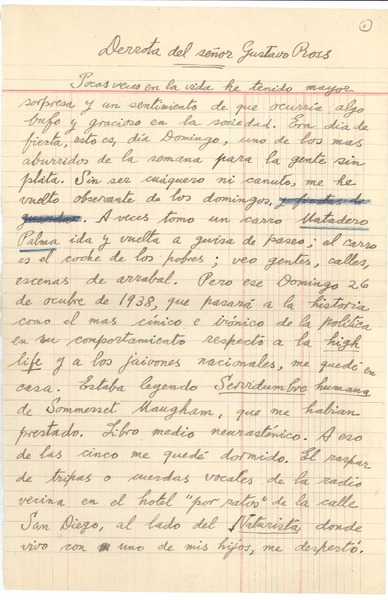 1
Derrota del señor Gustavo Ross
Pocas veces en la vida he tenido mayor
sorpresa y un sentimiento de que ocurría algo
bufo y gracioso en la sociedad. Era día de
fiesta, esto es, día Domingo, uno de los mas
aburridos de la semana para la gente sin
plata. Sin ser cuáquero ni canuto, me he
vuelto observante de los domingos,
A veces tomo un carro Matadero
Palma ida y vuelta a guisa de paseo; el carro
es el coche de los pobres; veo gentes, calles,
escenas de arrabal. Pero ese Domingo 26
de ocubre de 1938, que pasará a la historia
como el mas cínico e irónico de la política
en su comportamiento respecto a la high
life y a los jaivones nacionales, me quedé en
casa. Estaba leyendo Servidumbre humana
de Sommerset Maugham, que me habían
prestado. Libro medio neurasténico. A eso
de las cinco me quedé dormido. El raspar
de tripas o cuerdas vocales de la radio
vecina en el hotel "por ratos" de la calle
San Diego, al lado del Naturista, donde
vivo con uno de mis hijos, me despertó.